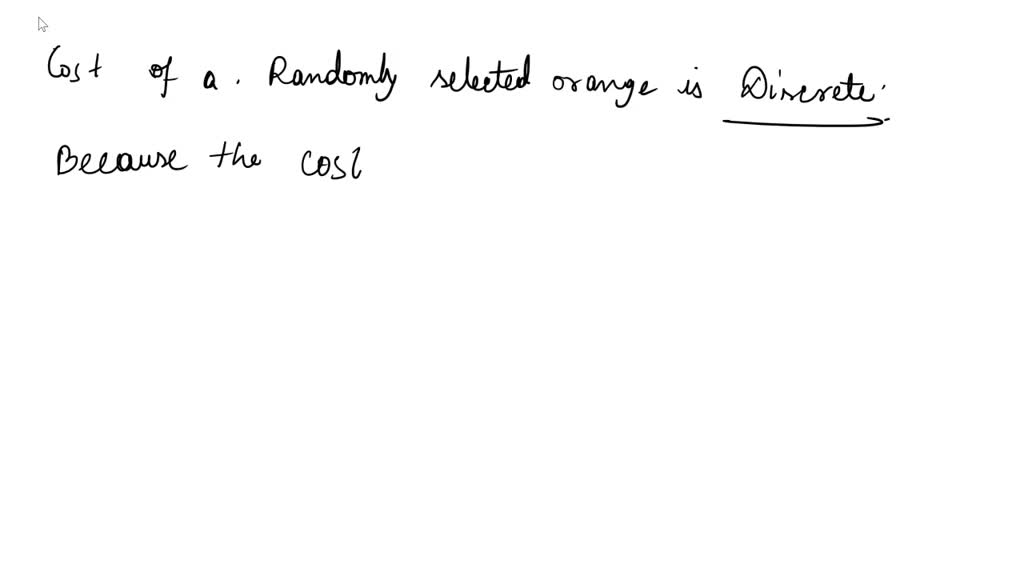 Cost of a. Randomly selected orange is Discrete.
Because the cost